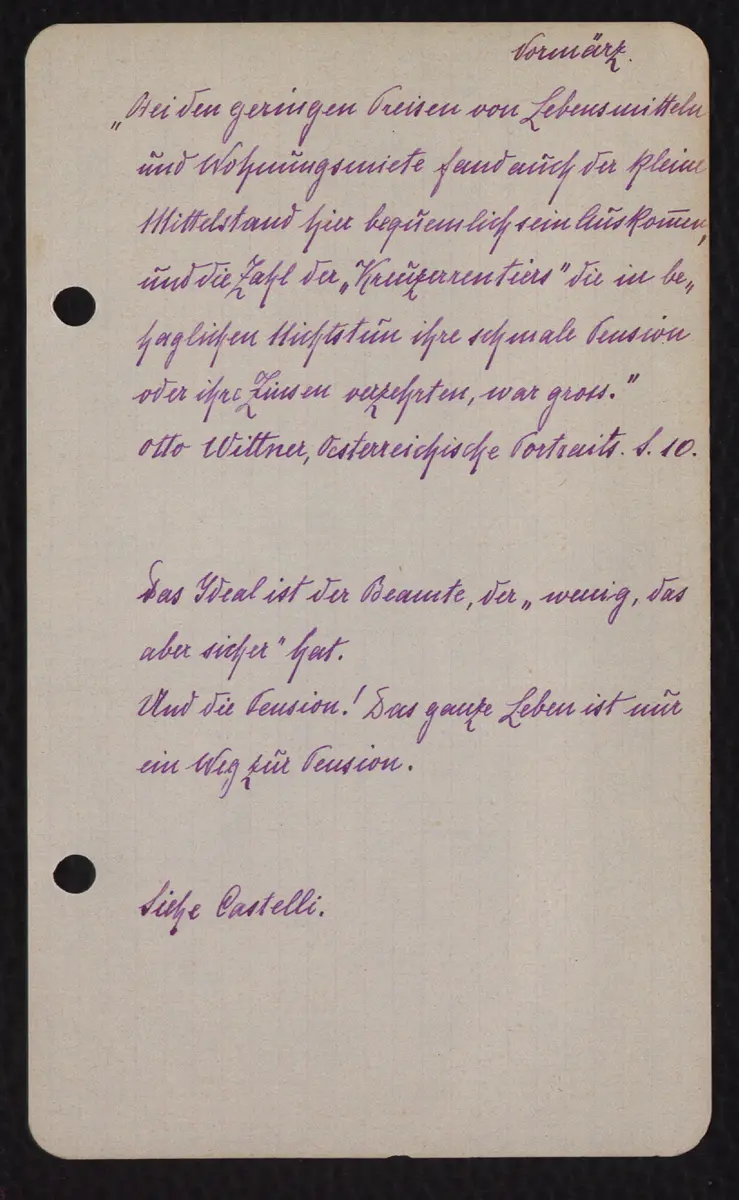 Vormärz.
„Bei den geringen Preisen von Lebensmitteln
und Wohnungsmiete fand auch der kleine
Mittelstand hier bequemlich sein Auskom̅en,
und die Zahl der „Kreuzerrentiers" die in be„
haglichen Nichtstun ihre schmale Pension
oder ihre Zinsen verzehrten, war gross."
Otto Wittner, Österreichische Portraits. S. 10.
Das Ideal ist der Beamte, der „wenig, das
aber sicher" hat.
Und die Pension! Das ganze Leben ist nur
ein Weg zur Pension.
Siehe Castelli.